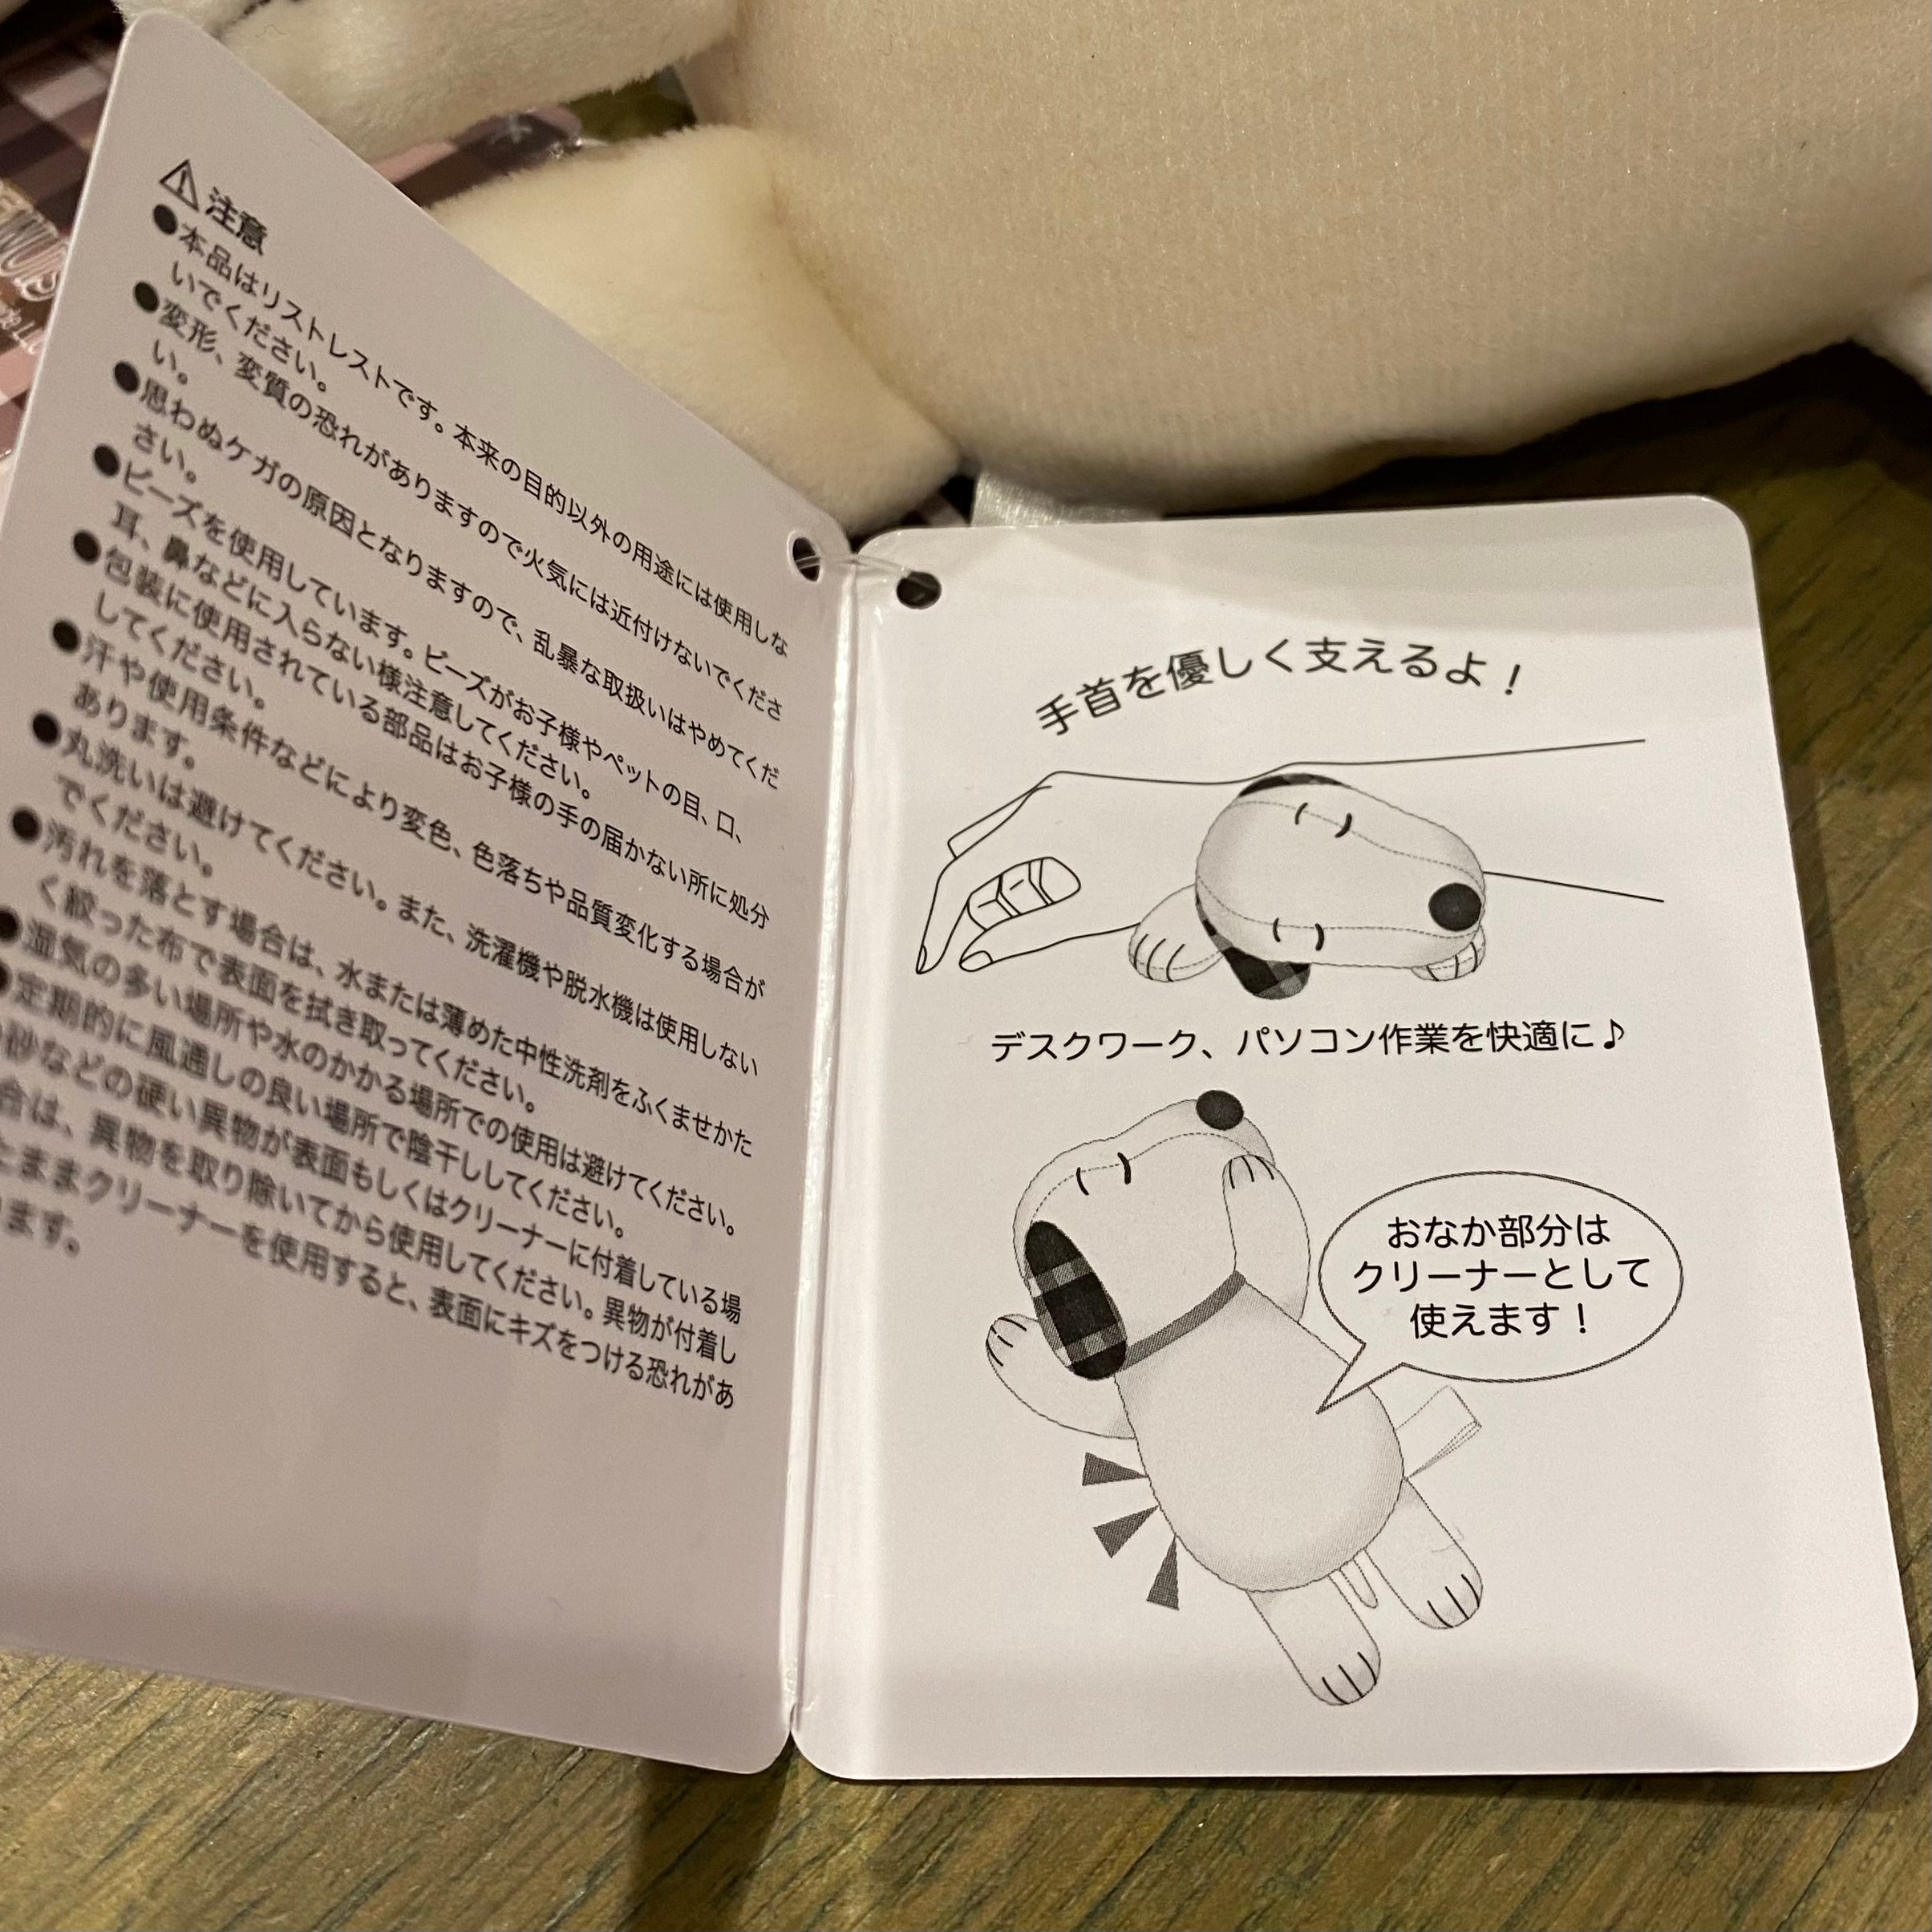 注意
●本品はリストレストです。本来の目的以外の用途には使用しな
いでください。
●変形、変質の恐れがありますので火気には近付けないでくださ
い。
●思わぬケガの原因となりますので、乱暴な取扱いはやめてくだ
さい。
●ビーズを使用しています。ビーズがお子様やペットの目、口、
耳、鼻などに入らない様注意してください。
●包装に使用されている部品はお子様の手の届かない所に処分
してください。
●汗や使用条件などにより変色、色落ちや品質変化する場合が
あります。
●丸洗いは避けてください。また、洗濯機や脱水機は使用しない
でください。
●汚れを落とす場合は、水または薄めた中性洗剤をふくませかた
く絞った布で表面を拭き取ってください。
●湿気の多い場所や水のかかる場所での使用は避けてください。
●定期的に風通しの良い場所で陰干ししてください。
砂などの硬い異物が表面もしくはクリーナーに付着している場
合は、異物を取り除いてから使用してください。異物が付着し
たままクリーナーを使用すると、表面にキズをつける恐れがあ
ます。
手首を優しく支えるよ！
デスクワーク、パソコン作業を快適に♪
おなか部分は
クリーナーとして
使えます！